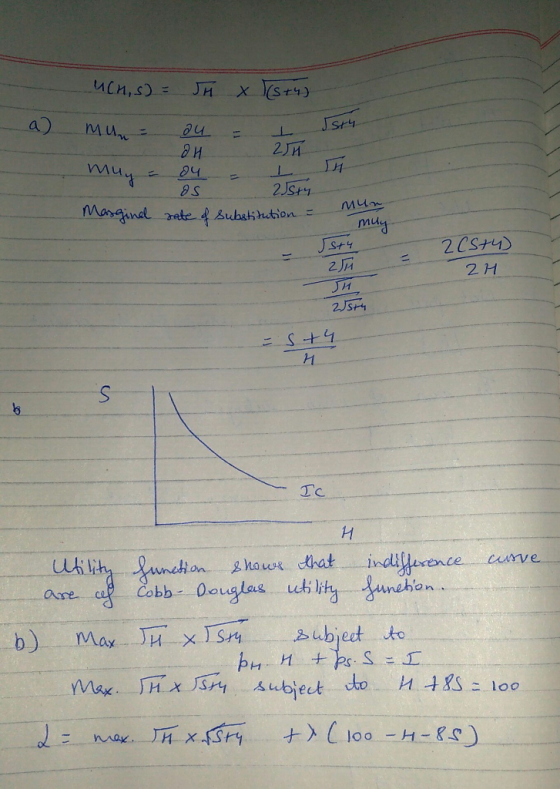 u(H,S) = √H × √(S+4)
a) MUx = ∂U/∂H = 1/2√H √S+4
MUy = ∂U/∂S = 1/2√S+4 √H
Marginal rate of substitution = MUx/MUy
= (√S+4/2√H)/(√H/2√S+4) = 2(S+4)/2H
= S+4/H
S
b
IC
H
Utility function shows that indifference curve
are of Cobb-Douglas utility function.
b) Max √H × √S+4 subject to
pH. H + ps. S = I
Max. √H × √S+4 subject to H + 8S = 100
L = max. √H × √S+4 + λ(100 - H - 8S)